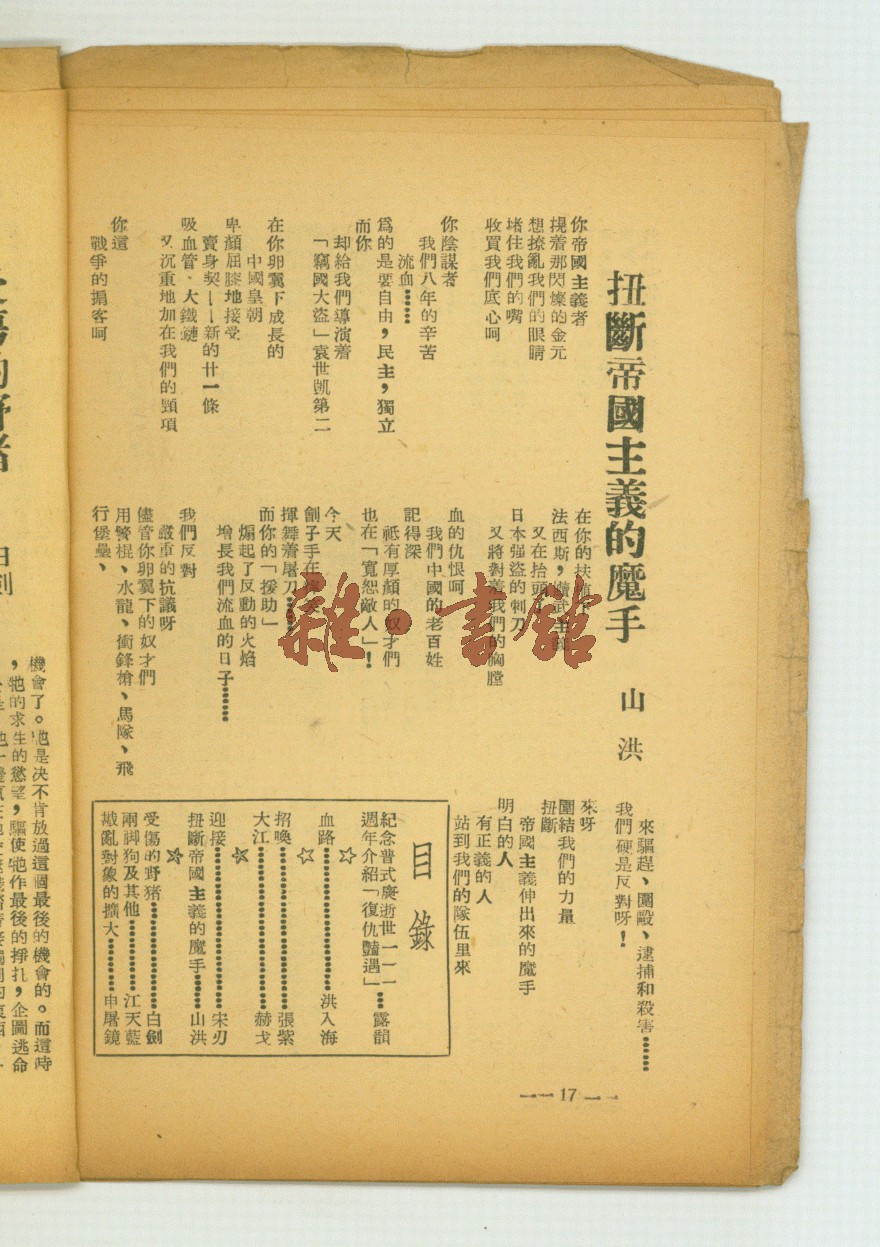 扭斷帝國主義的魔手
山洪
你帝國主義者
提着那閃燦的金元
想撩亂我們的眼睛
堵住我們的嘴
收買我們底心呵
你陰謀者
我們八年的辛苦
流血……
爲的是要自由，民主，獨立
而你
却給我們導演着
「竊國大盜」袁世凱第二
在你卵翼下成長的
中國皇朝
卑顏屈膝地接受
賣身契——新的廿一條
吸血管．大鐵鏈
又沉重地加在我們的頸項
你這
戰爭的掮客呵
在你的扶
法西斯，
又在抬頭
日本强盜的刺刀
又將對着我們的胸膛
血的仇恨呵
我們中國的老百姓
記得深
祗有厚顏的奴才們
也在「寬恕敵人」！
今天
劊子手在
揮舞着屠刀
而你的「援助」
煽起了反動的火焰
增長我們流血的日子……
我們反對
嚴重的抗議呀
儘管你卵翼下的奴才們
用警棍、水龍、衝鋒槍、馬隊、飛
行堡壘、
來驅趕、圍毆、逮捕和殺害……
我們硬是反對呀！
來呀
團結我們的力量
扭斷
帝國主義伸出來的魔手
明白的人
有正義的人
站到我們的隊伍里來
目錄
紀念普式庚逝世一一一
週年介紹「復仇豔遇」……露韻
☆
血路……洪入海
☆
招喚……張紫
大江……赫戈
☆
迎接……宋刃
扭斷帝國主義的魔手……山洪
☆
受傷的野猪……白劍
兩脚狗及其他……江天藍
戡亂對象的擴大……申屠鏡
——17——
傷的野猪
白劍
機會了。牠是决不肯放過這個最後的機會的。而這時
，牠的求生的慾望，驅使牠作最後的掙扎，企圖逃命
雜·書館